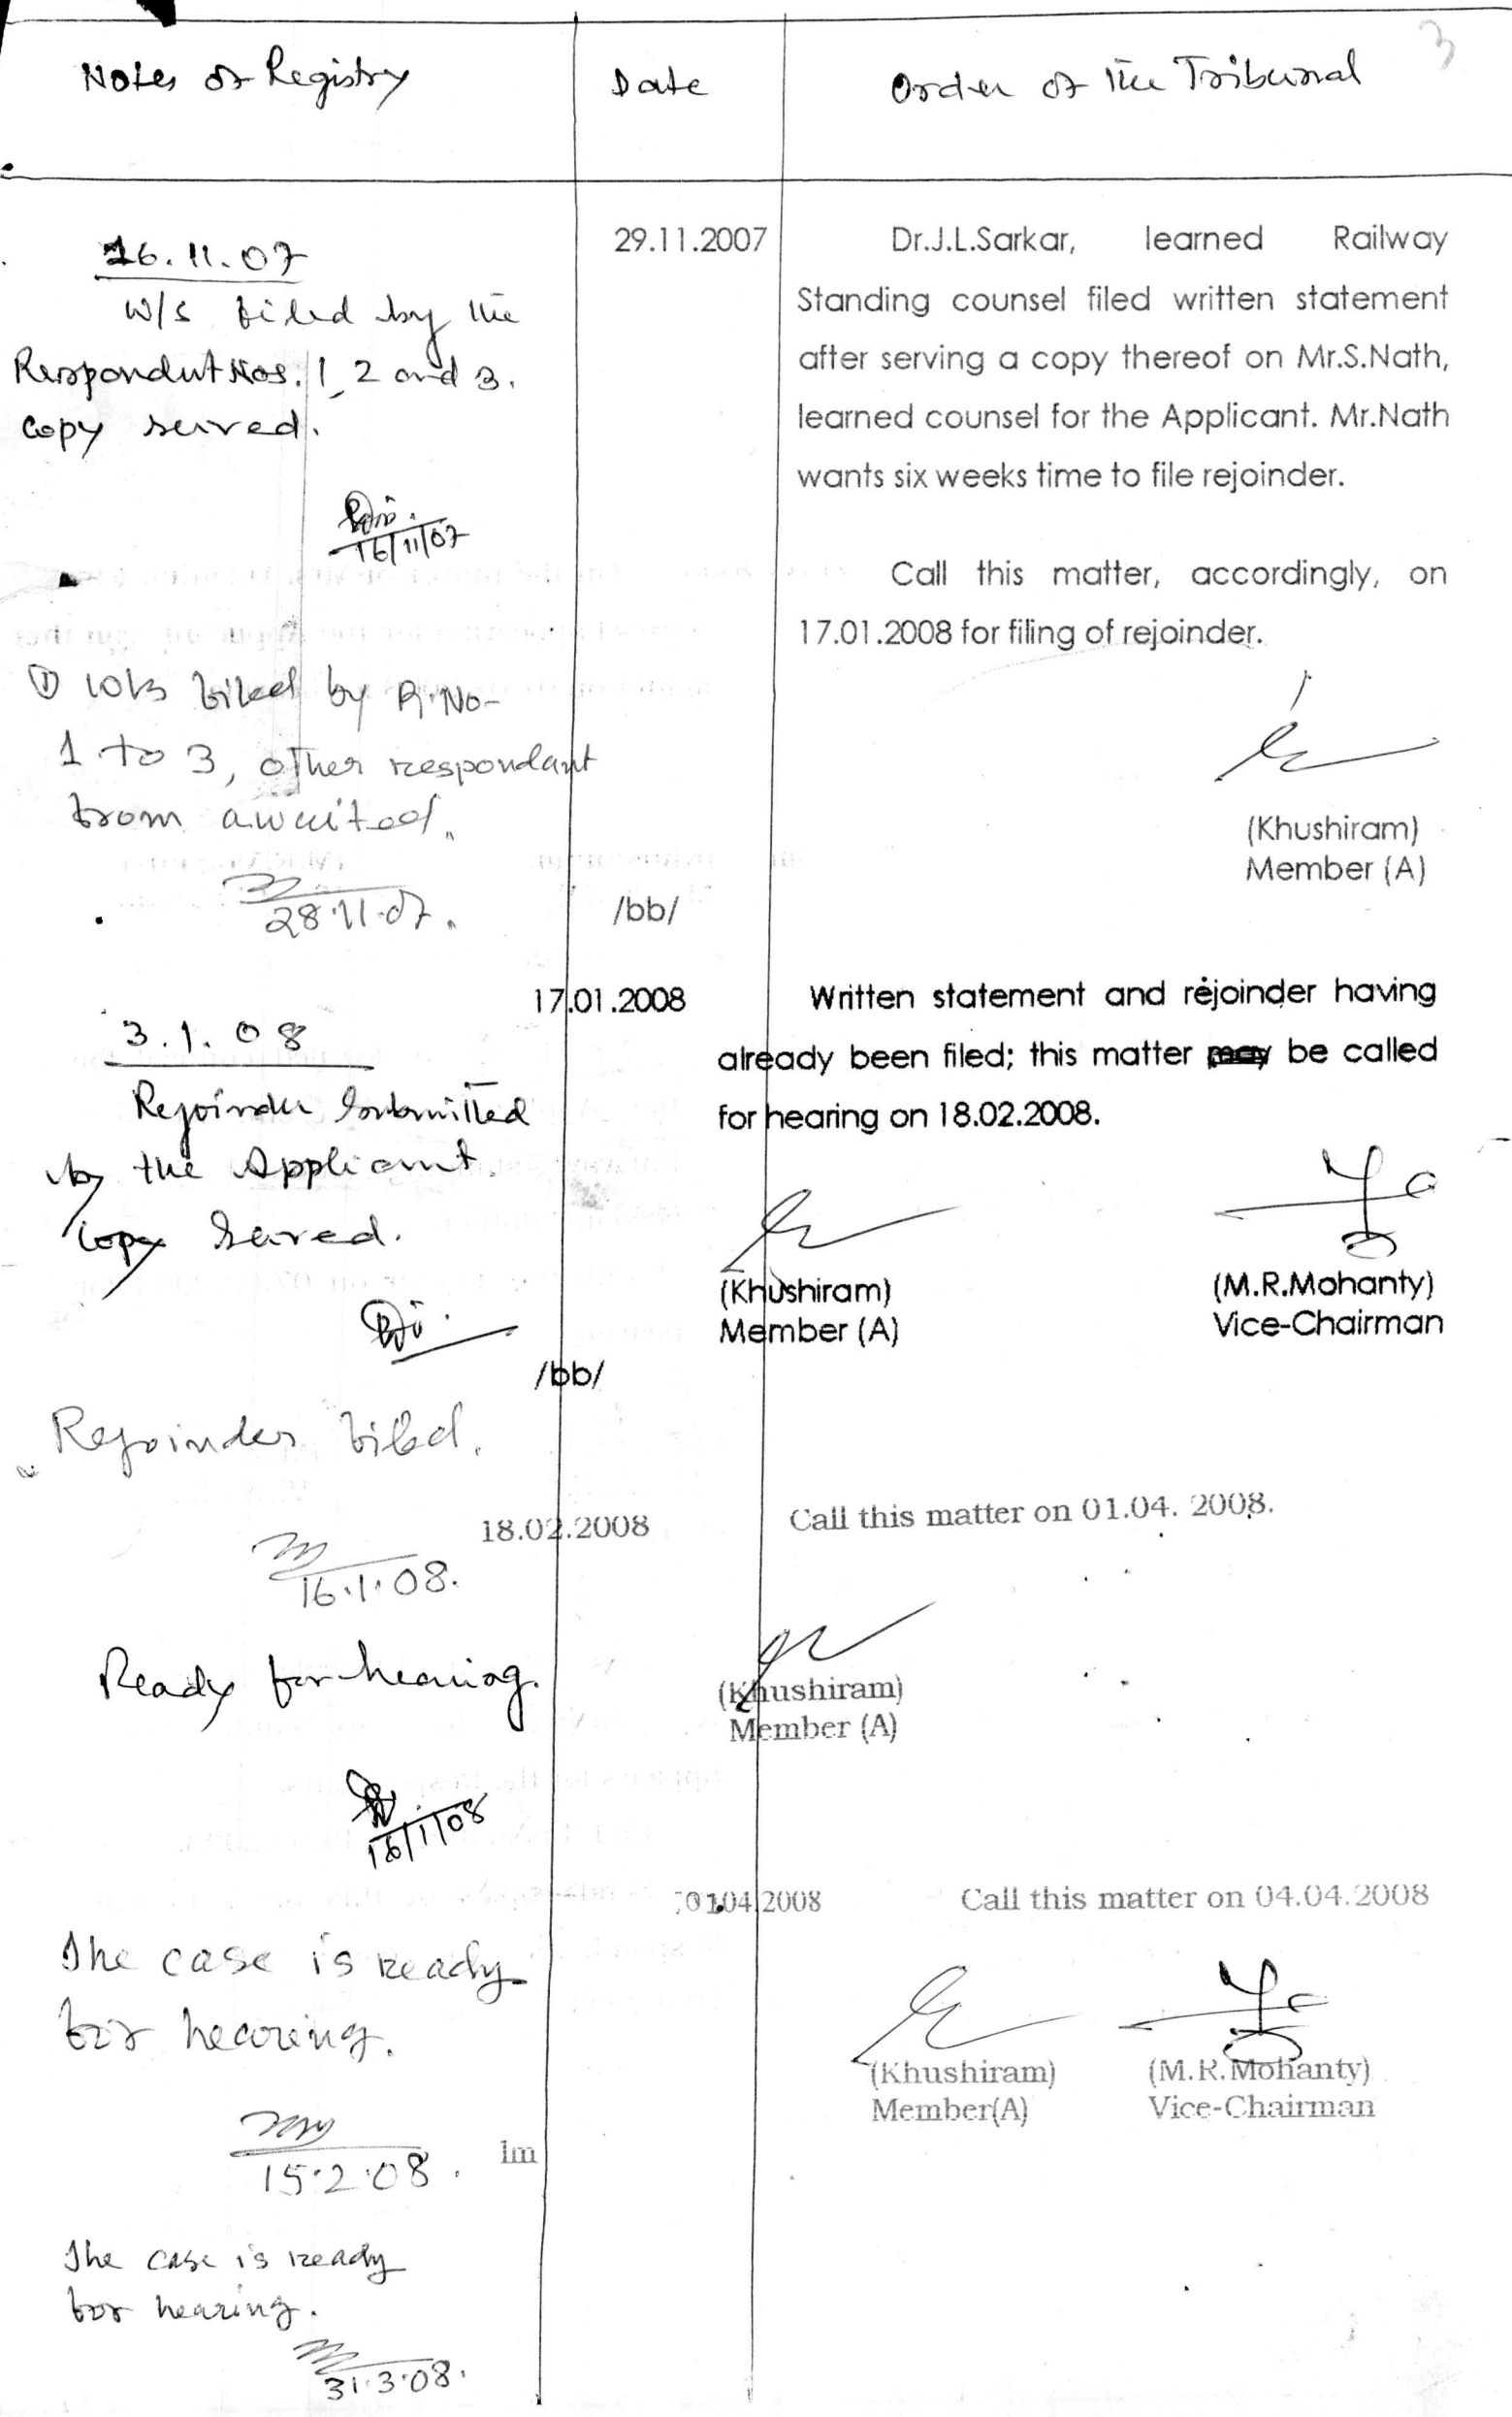 3
Notes of Registry
Date
Order of the Tribunal
16.11.07
W/S filed by the
Respondent Nos. 1, 2 and 3.
Copy served.
16/11/07
① W/s filed by R.No-
1 to 3, other respondant
from awaited.
28.11.07.
3.1.08
Rejoinder submitted
by the Applicant.
Copy served.
Rejoinder filed.
16.1.08.
Ready for hearing.
16/1/08
The case is ready
for hearing.
15.2.08.
The case is ready
for hearing.
31.3.08.
29.11.2007
Dr.J.L.Sarkar, learned Railway
Standing counsel filed written statement
after serving a copy thereof on Mr.S.Nath,
learned counsel for the Applicant. Mr.Nath
wants six weeks time to file rejoinder.
Call this matter, accordingly, on
17.01.2008 for filing of rejoinder.
(Khushiram)
Member (A)
/bb/
17.01.2008
Written statement and rejoinder having
already been filed; this matter may be called
for hearing on 18.02.2008.
(Khushiram)
Member (A)
(M.R.Mohanty)
Vice-Chairman
/bb/
18.02.2008
Call this matter on 01.04. 2008.
(Khushiram)
Member (A)
01.04.2008
Call this matter on 04.04.2008
(Khushiram)
Member(A)
(M.R.Mohanty)
Vice-Chairman
lm